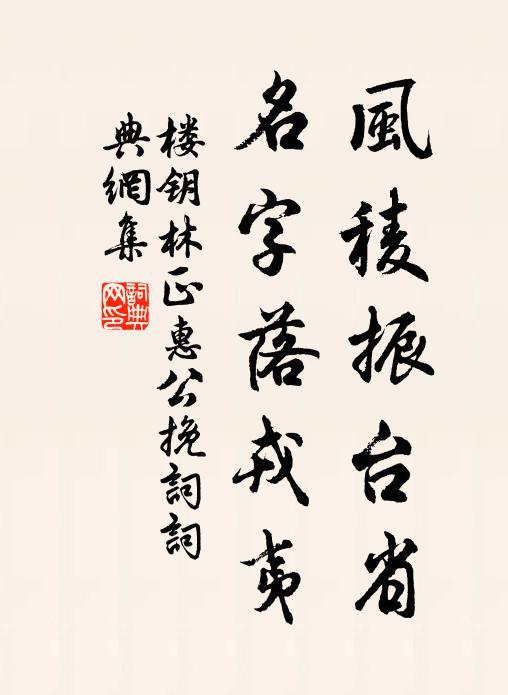 風稜振台省
名字落戎夷
楼钥林正惠公挽詞詞
典網集
詞典网印